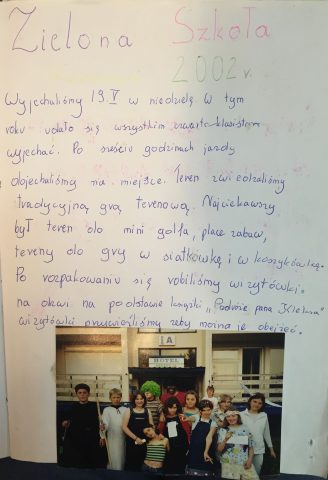 Zielona Szkoła
2002 r.
Wyjechaliśmy 19.V w niedzielę w tym
roku udało się wszystkim czwartoklasistom
wyjechać. Po sześciu godzinach jazdy
dojechaliśmy na miejsce. Teren zwiedzaliśmy
tradycyjną grą terenową. Najciekawszy
był teren do mini golfa, place zabaw,
tereny do gry w siatkówkę i w koszykówkę.
Po rozpakowaniu się robiliśmy wizytówki
na drzwi na podstawie książki „Podróże pana Kleksa"
wizytówki przywieźliśmy żeby można je obejżeć.
HOTEL